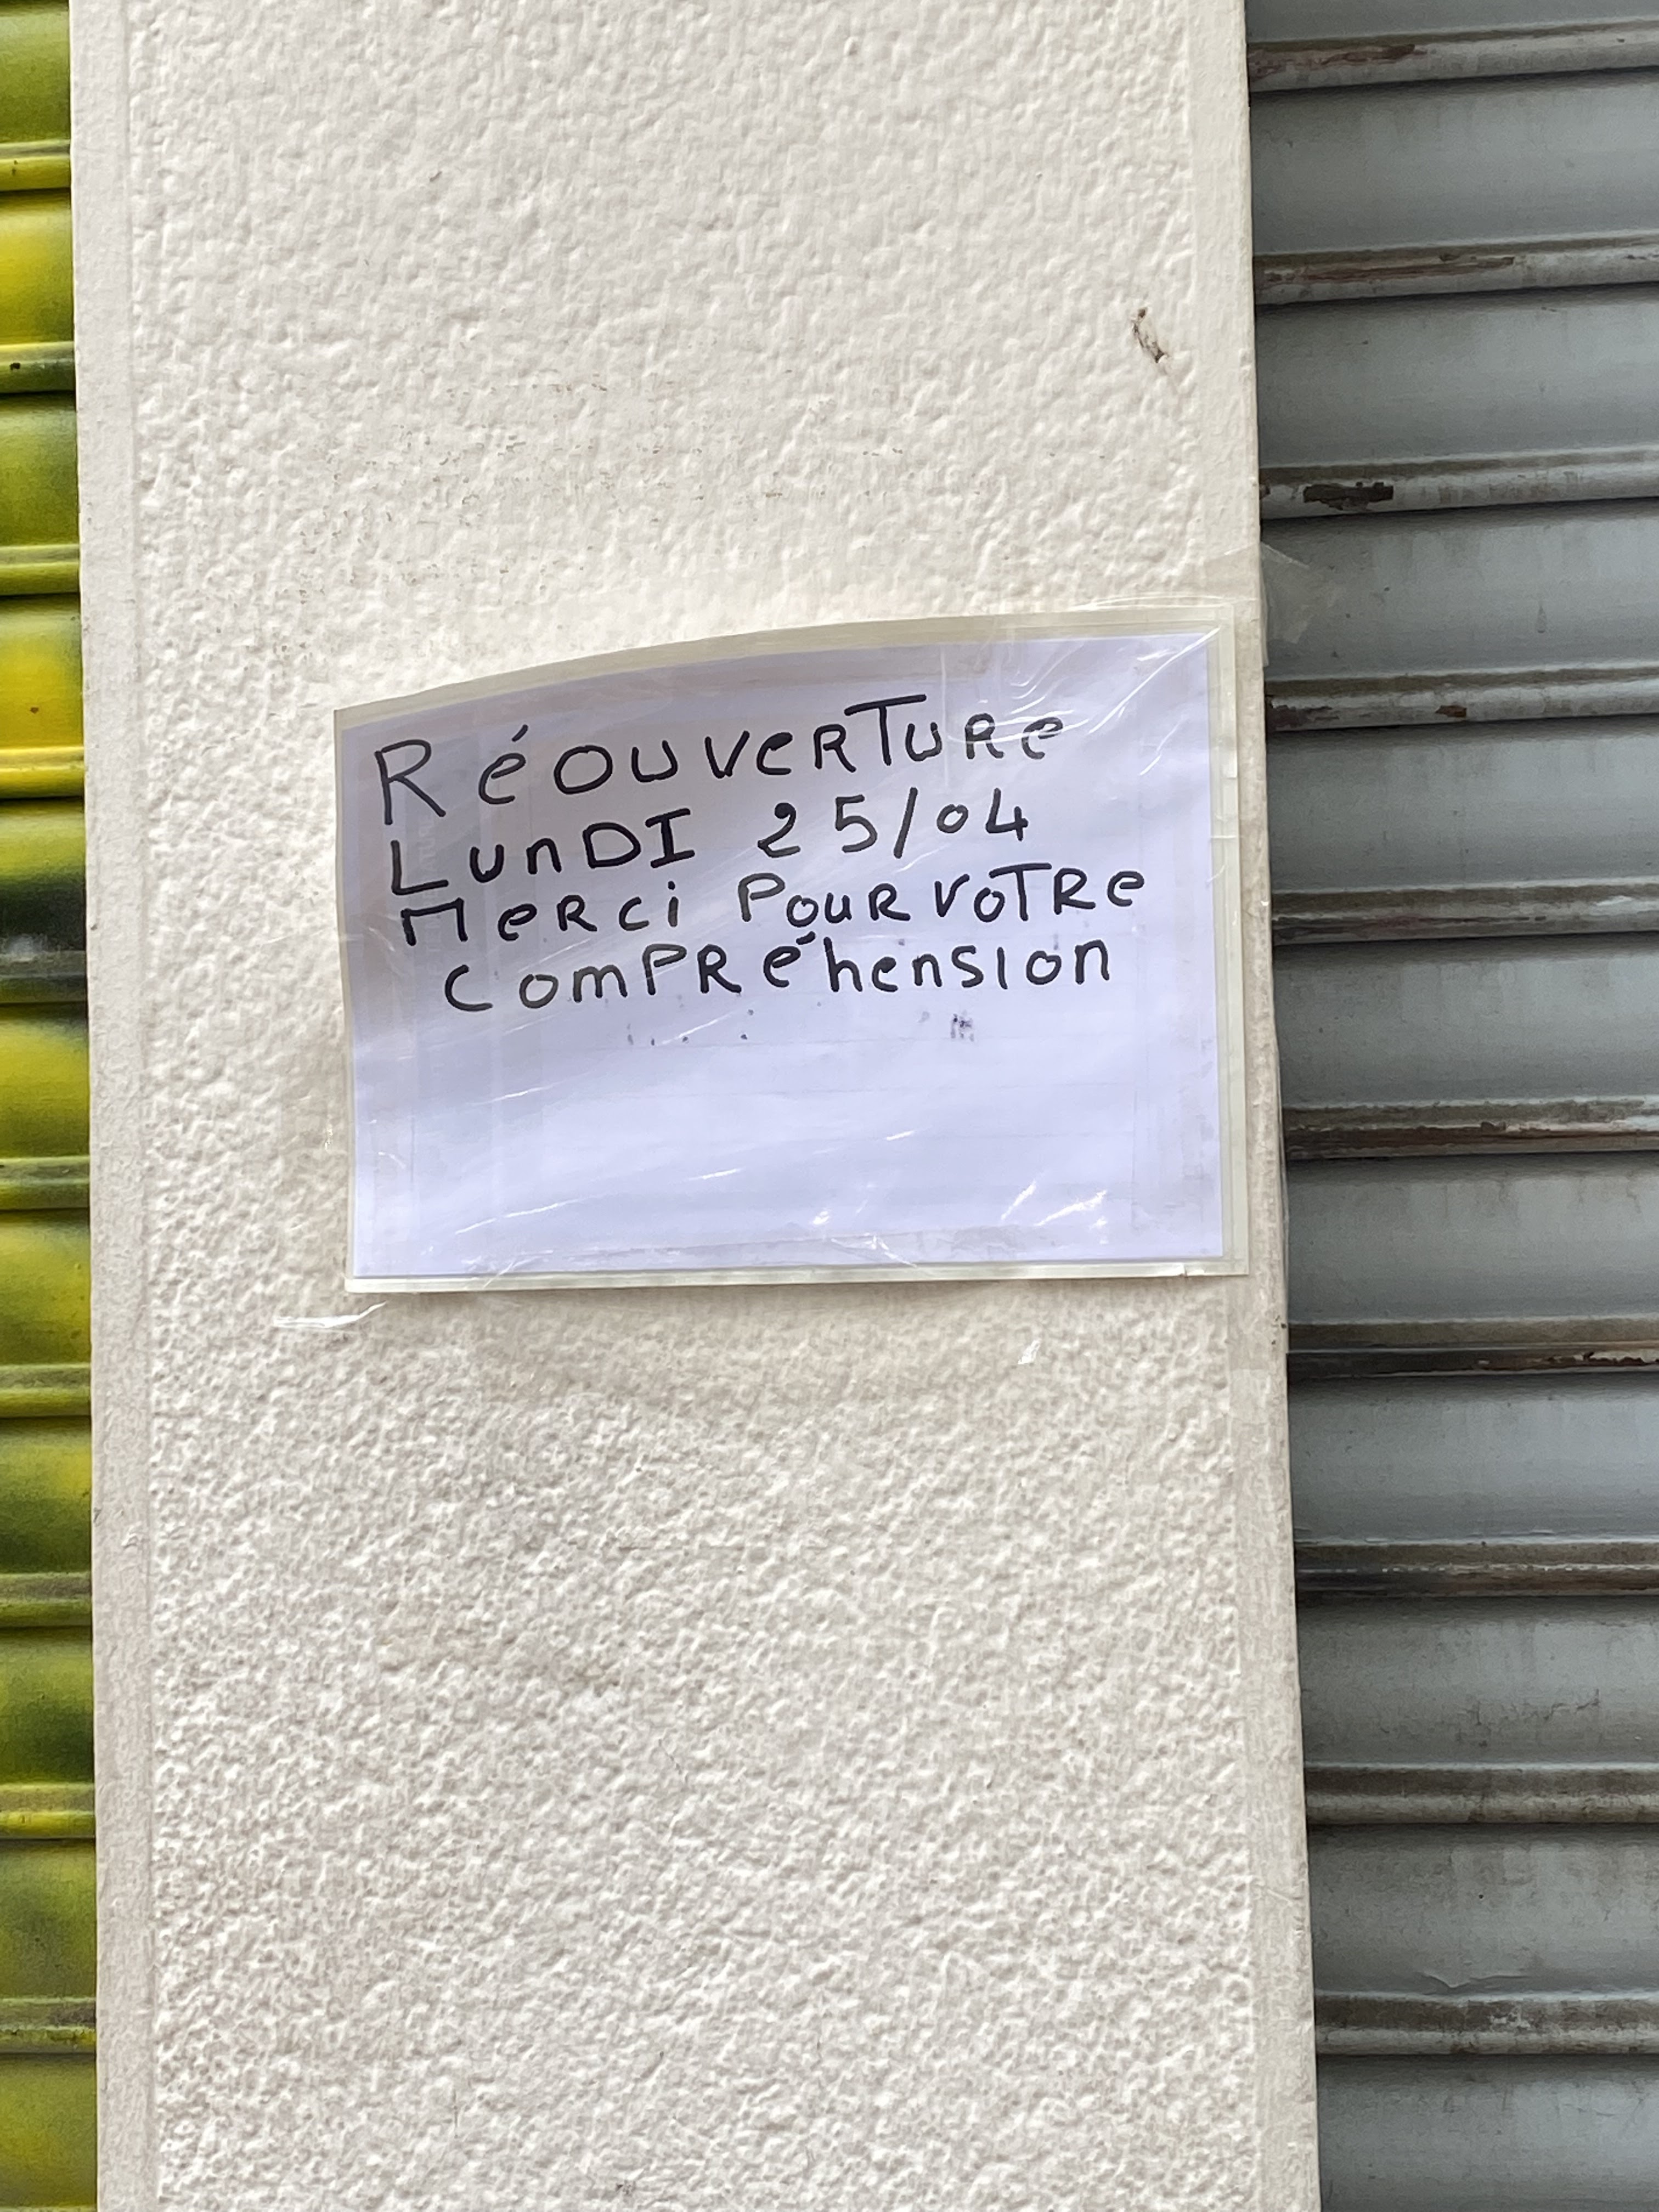 RéouveRTuRe
LunDI 25/04
MeRci PouR voTRe
comPRéhension